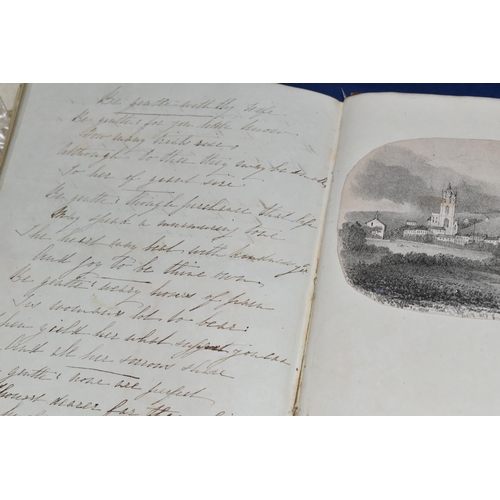 Be gentle with thy wife
Be gentle: for you little know
How many trials rise,
Although to thee they may be small
To her of giant size
Be gentle: though perchance that lip
May speak a murmuring tone
The heart may beat with kindness yet
And joy to be thine own.
Be gentle: weary hours of pain
'Tis woman's lot to bear:
Then yield her what support you can
And all her sorrows share
gentle: none are perfect
dearer far than